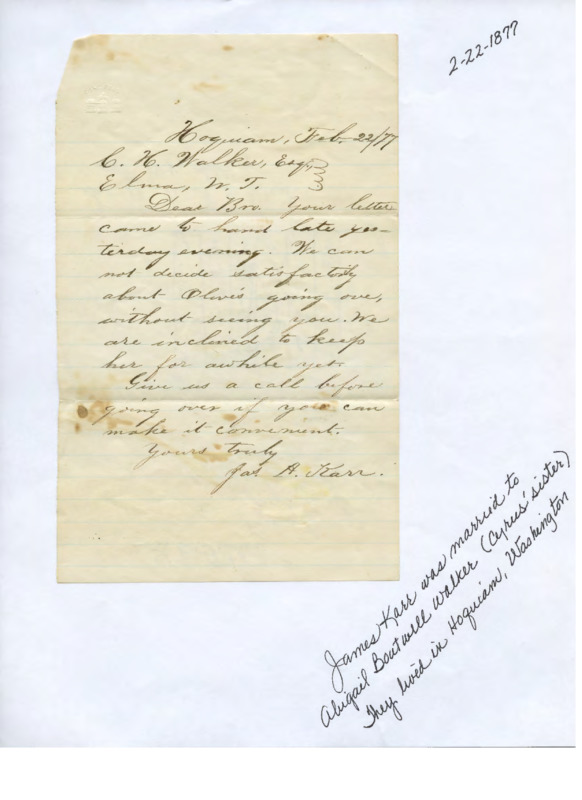 2-22-1877
Hoquiam, Feb. 22/77
C. H. Walker, Esq.,
Elma, W. T.
Dear Bro. Your letter
came to hand late yes-
terday evening. We can
not decide satisfactorily
about Olive's going over,
without seeing you. We
are inclined to keep
her for awhile yet.
Give us a call before
going over if you can
make it convenient.
Yours truly
Jas A. Karr.
James Karr was married to
Abigail Boutwell Walker (Cyrus' sister)
They lived in Hoquiam, Washington